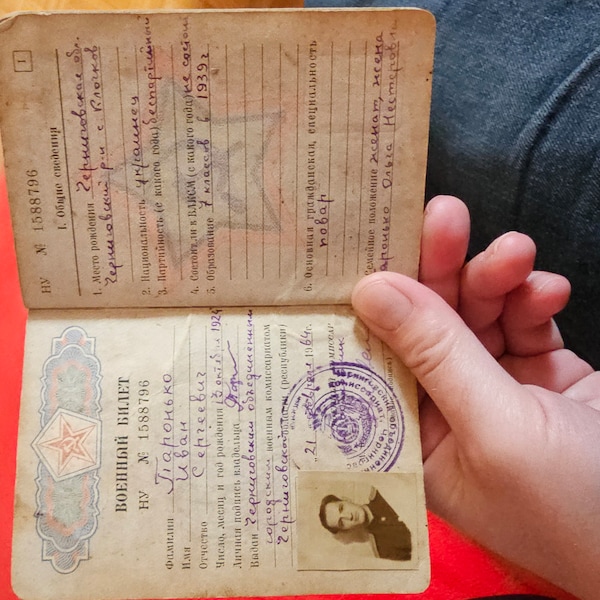 ВОЕННЫЙ БИЛЕТ
НУ № 1588796
Фамилия Таронько
Имя Иван
Отчество Сергеевич
Число, месяц и год рождения 13 октября 1924
Личная подпись владельца
Выдан Черниговским объединенным
городским военным комиссариатом
Черниговской области (республики)
„21" 1964г.
НУ № 1588796
1
I. Общие сведения
1. Место рождения Черниговская обл.
Черниговский р-н с. Клочков
2. Национальность украинец
3. Партийность (с какого года) беспартийный
4. Состоит ли в ВЛКСМ (с какого года) не состоит
5. Образование 7 классов в 1939г
6. Основная гражданская специальность
повар
Семейное положение женат, жена
Таронько Ольга Нестеровна